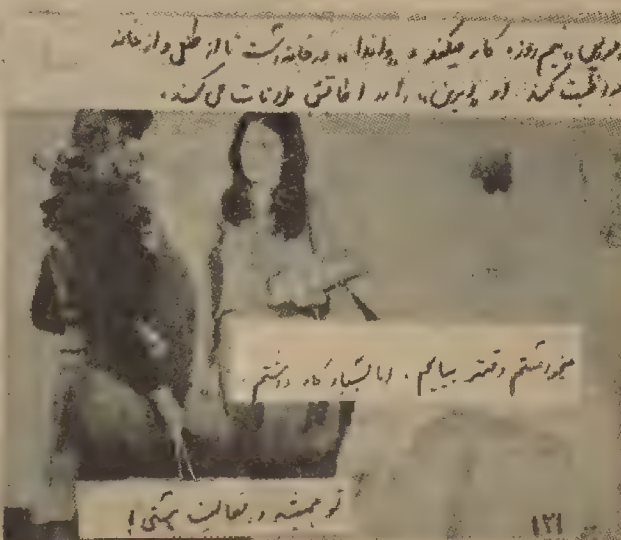 نیم روزه کار میکند و «واندا» در خانه است تا از طفل و از خانه
مراقبت کند. او را در اطاقش ملاقات می کند.
میخواستم زودتر بیایم. اما بسیار کار داشتم.
تو همیشه در فعالیت هستی!
۱۲۱